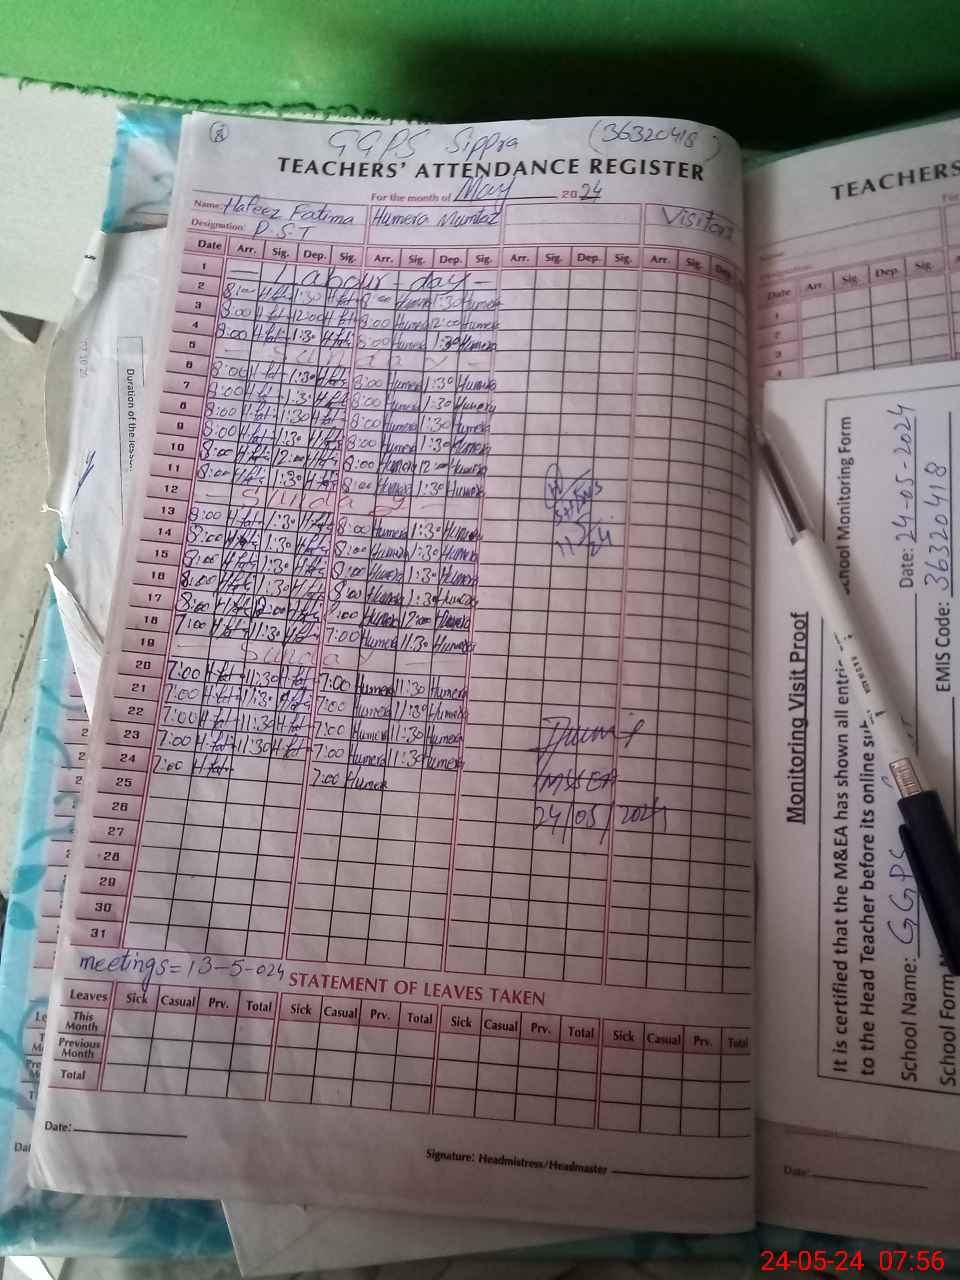 GGPS Sippra (36320418)
TEACHERS' ATTENDANCE REGISTER
For the month of May 2024
Name: Hafeez Fatima Humera Mumtaz Visitors
Designation: P.S.T
Date Arr. Sig. Dep. Sig. Arr. Sig. Dep. Sig. Arr. Sig. Dep. Sig. Arr. Sig. Dep.
1 Labour day
2 8:00 H.fat 1:30 H.fat 8:00 Humera 1:30 Humera
3 8:00 H.fat 12:00 H.fat 8:00 Humera 12:00 Humera
4 8:00 H.fat 1:30 H.fat 8:00 Humera 1:30 Humera
5 Sunday
6 8:00 H.fat 1:30 H.fat 8:00 Humera 1:30 Humera
7 8:00 H.fat 1:30 H.fat 8:00 Humera 1:30 Humera
8 8:00 H.fat 1:30 H.fat 8:00 Humera 1:30 Humera
9 8:00 H.fat 1:30 H.fat 8:00 Humera 1:30 Humera
10 8:00 H.fat 12:00 H.fat 8:00 Humera 12:00 Humera
11 8:00 H.fat 1:30 H.fat 8:00 Humera 1:30 Humera
12 Sunday
13 8:00 H.fat 1:30 H.fat 8:00 Humera 1:30 Humera
14 8:00 H.fat 1:30 H.fat 8:00 Humera 1:30 Humera
15 8:00 H.fat 1:30 H.fat 8:00 Humera 1:30 Humera
16 8:00 H.fat 1:30 H.fat 8:00 Humera 1:30 Humera
17 8:00 H.fat 12:00 H.fat 8:00 Humera 12:00 Humera
18 7:00 H.fat 11:30 H.fat 7:00 Humera 11:30 Humera
19 Sunday
20 7:00 H.fat 11:30 H.fat 7:00 Humera 11:30 Humera
21 7:00 H.fat 11:30 H.fat 7:00 Humera 11:30 Humera
22 7:00 H.fat 11:30 H.fat 7:00 Humera 11:30 Humera
23 7:00 H.fat 11:30 H.fat 7:00 Humera 11:30 Humera
24 7:00 H.fat 7:00 Humera
25
26
27
28
29
30
31
24/05/2024
meetings=13-5-024
STATEMENT OF LEAVES TAKEN
Leaves Sick Casual Prv. Total Sick Casual Prv. Total Sick Casual Prv. Total Sick Casual Prv. Total
This Month
Previous Month
Total
Date:
Signature: Headmistress/Headmaster
TEACHERS
Date Arr. Sig. Dep. Sig.
1
2
3
4
Monitoring Visit Proof
School Monitoring Form
Date: 24-05-2024
It is certified that the M&EA has shown all
to the Head Teacher before its online
School Name: GGPS
EMIS Code: 36320418
School Form
Date:
Duration of the lesson
24-05-24 07:56